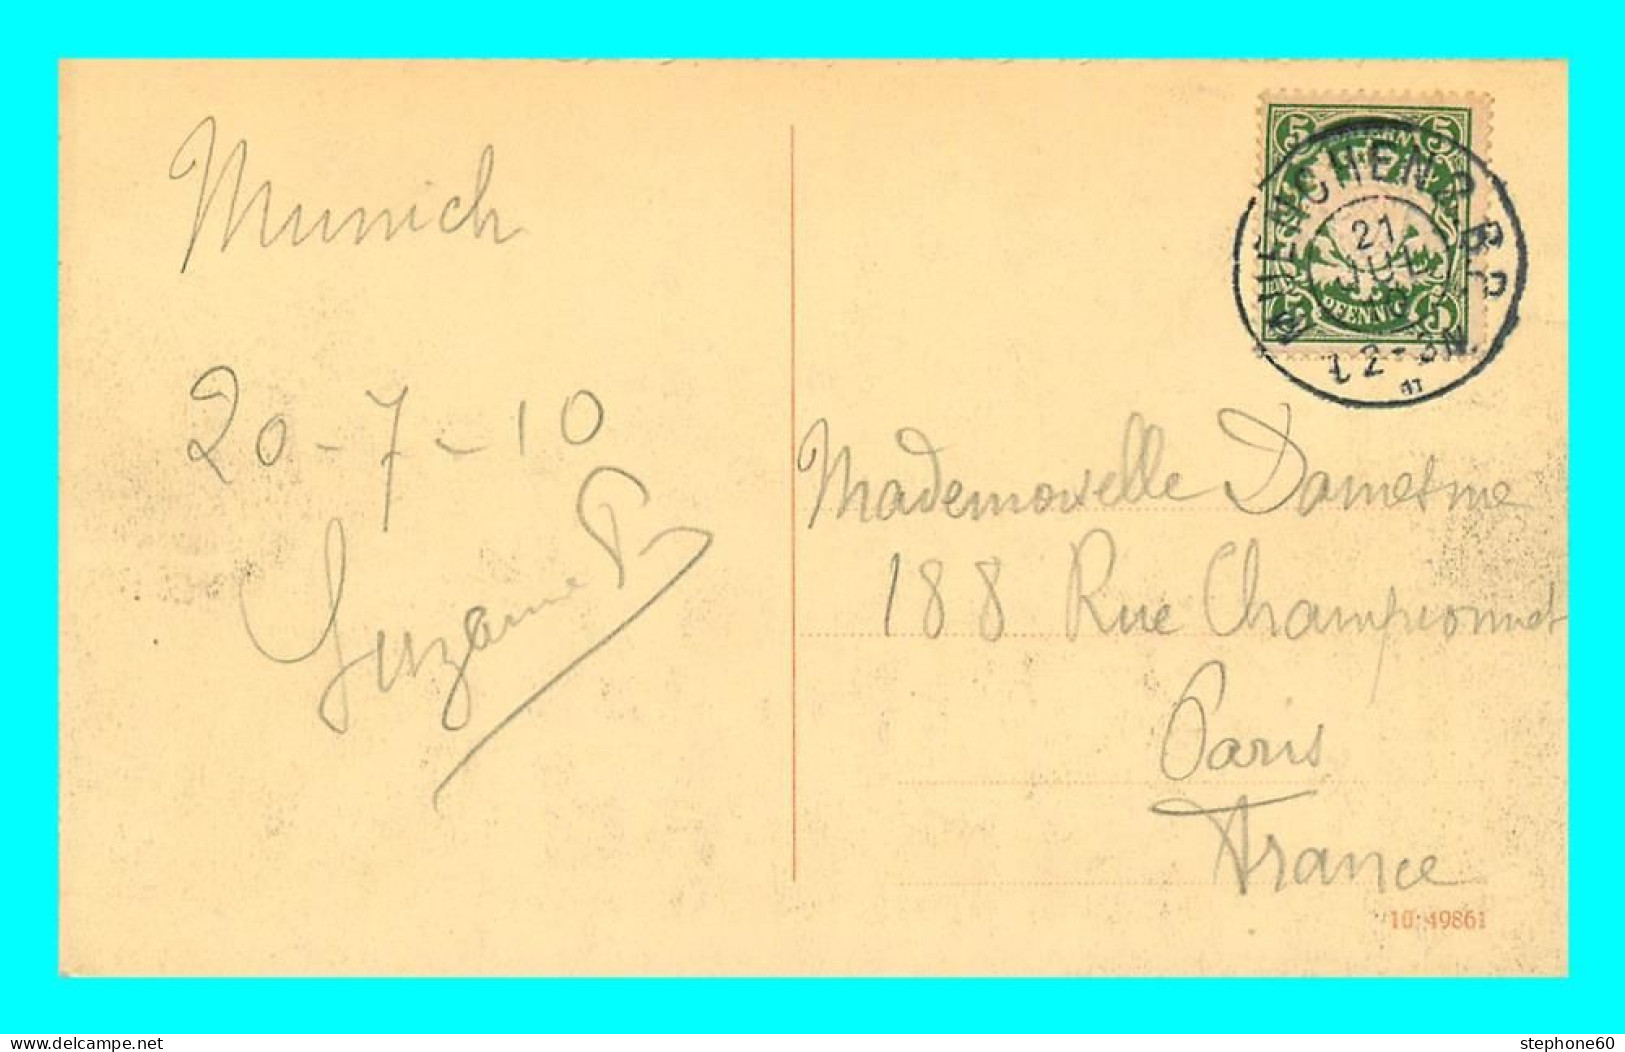 Munich
20-7-10
Suzanne P
5 BAYERN 5
5 PFENNIG 5
MUENCHEN 2 B.P.
21
JUL
10
2-3N.
Mademoiselle Damesme
188 Rue Championnet
Paris
France
10 49861
www.delcampe.net
stephone60